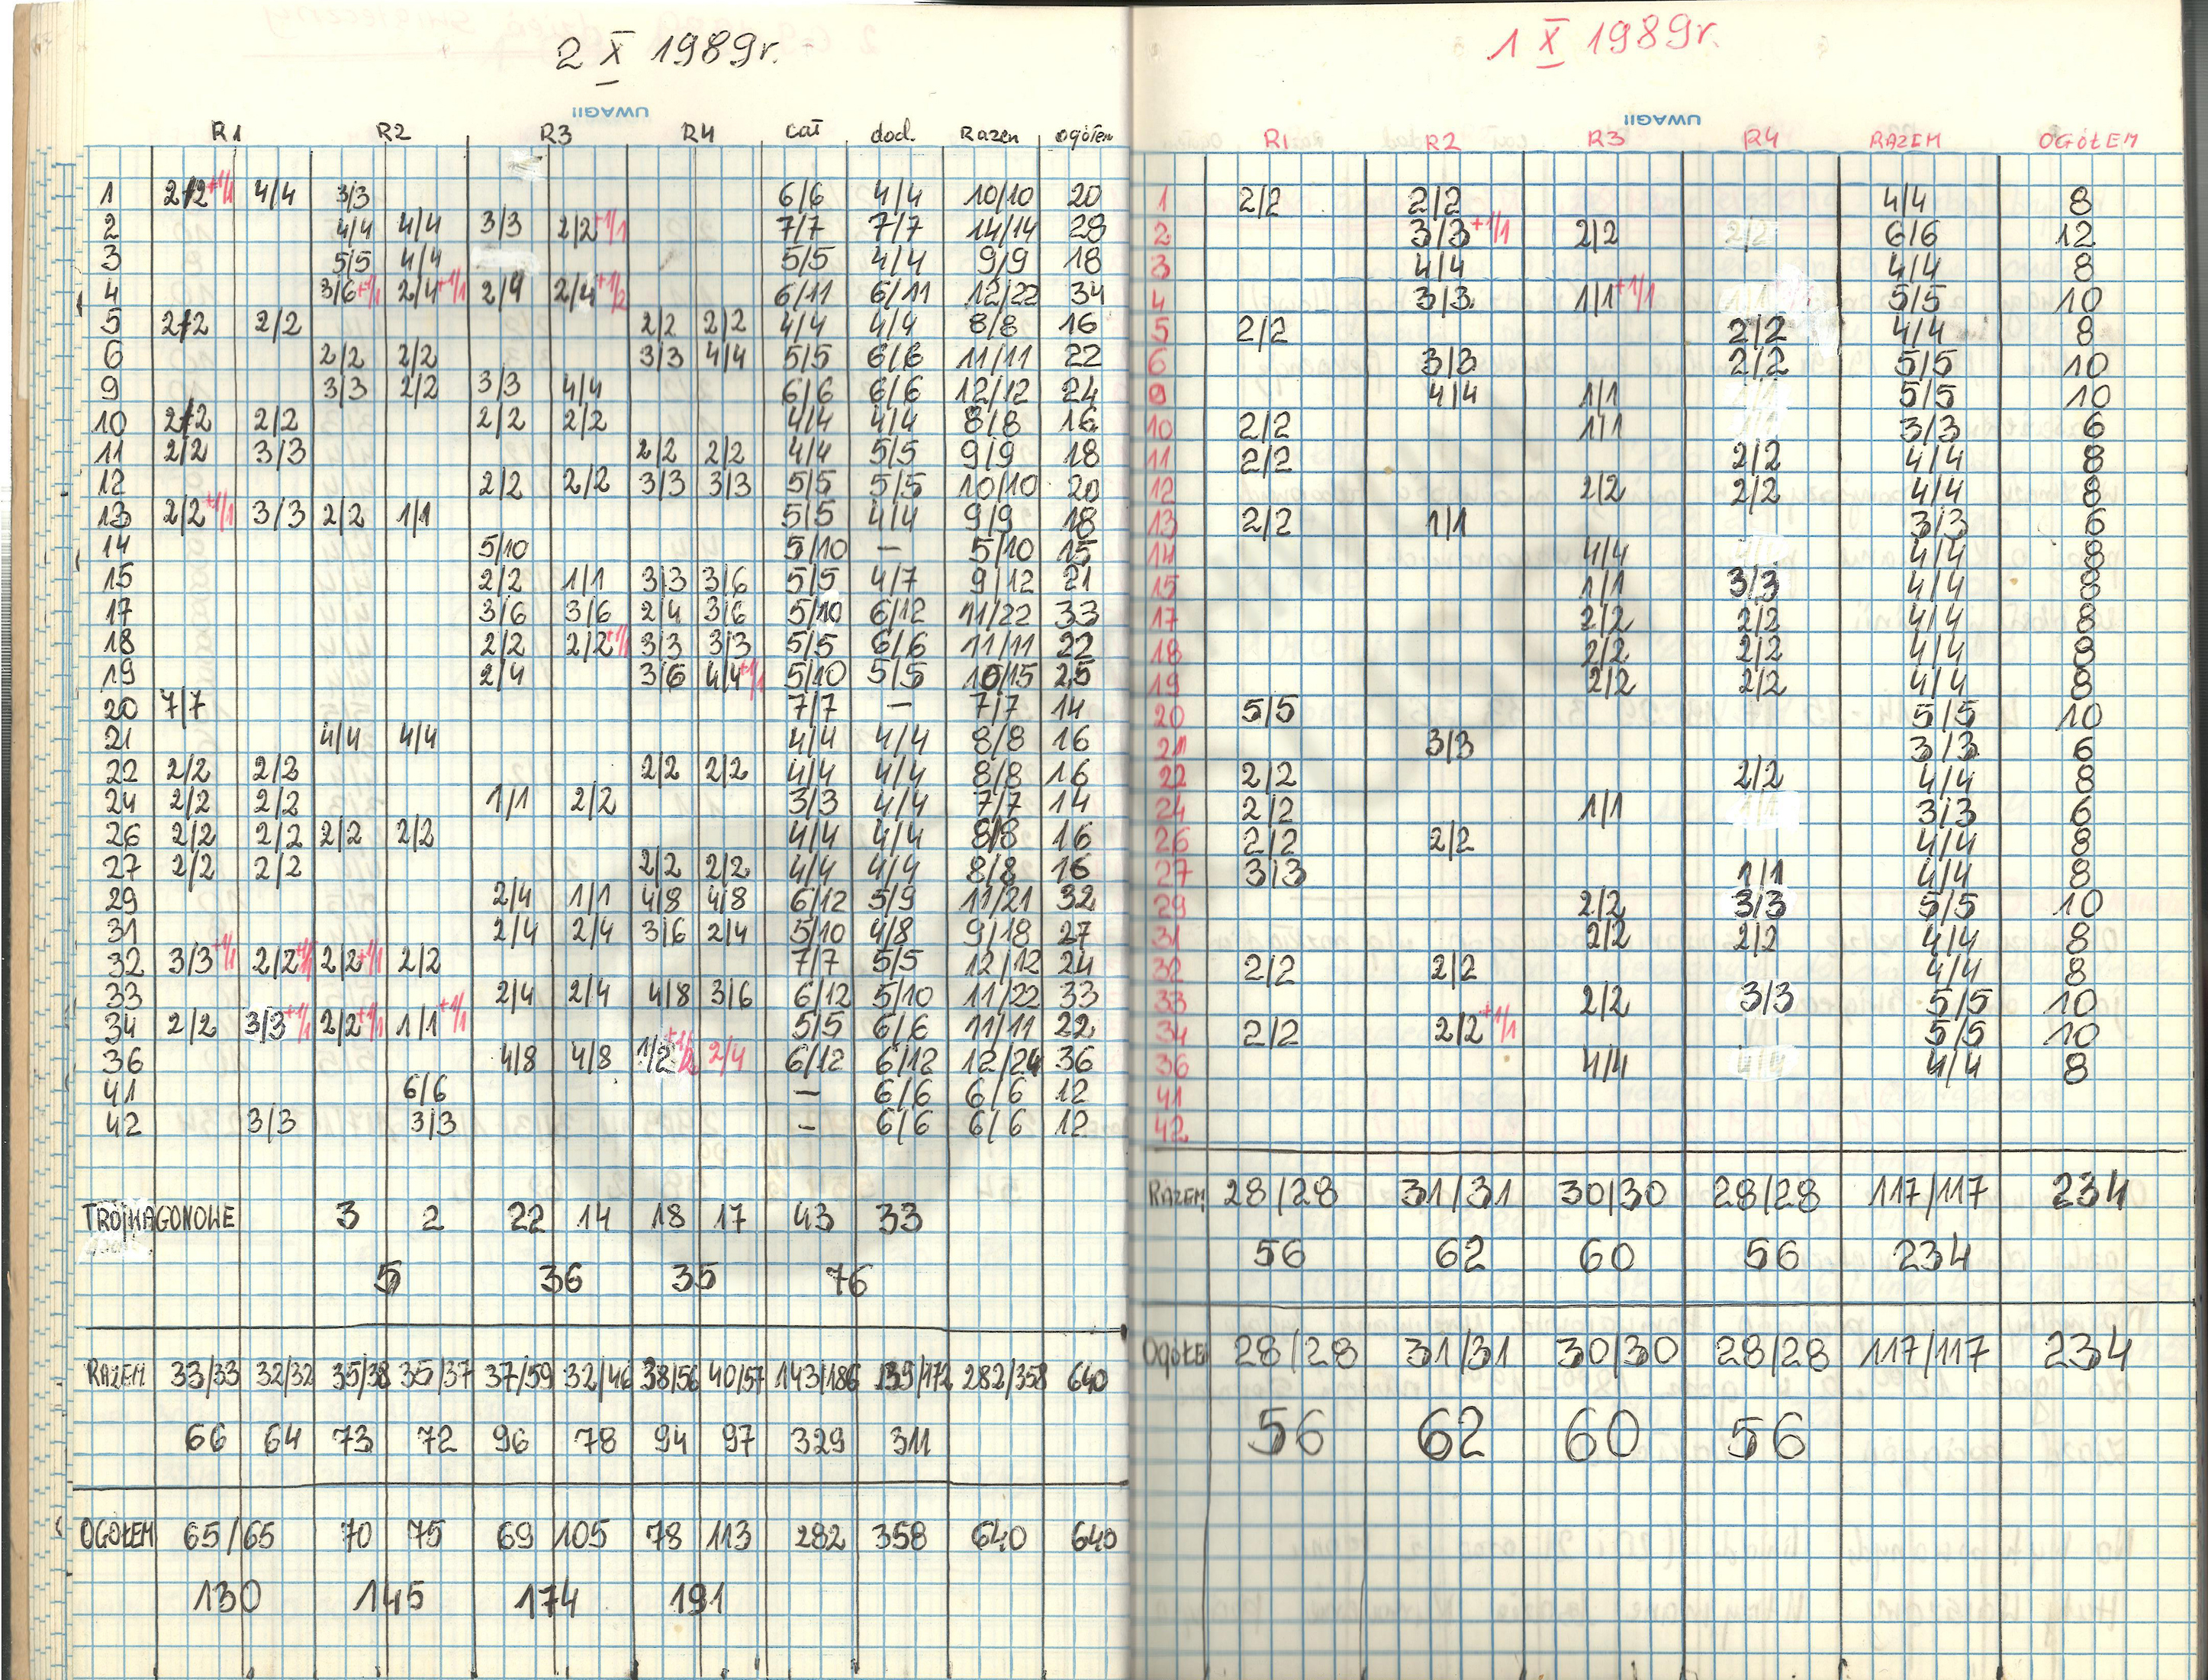 2 X 1989r.
UWAGI!
R1 R2 R3 R4 cał dod. Razem ogółem
1 2/2+1/1 4/4 3/3 6/6 4/4 10/10 20
2 4/4 4/4 3/3 2/2+1/1 7/7 7/7 14/14 28
3 5/5 4/4 5/5 4/4 9/9 18
4 3/6+1/1 2/4+1/1 2/4 2/4+1/2 6/11 6/11 12/22 34
5 2/2 2/2 2/2 2/2 4/4 4/4 8/8 16
6 2/2 2/2 3/3 4/4 5/5 6/6 11/11 22
9 3/3 2/2 3/3 4/4 6/6 6/6 12/12 24
10 2/2 2/2 2/2 2/2 4/4 4/4 8/8 16
11 2/2 3/3 2/2 2/2 4/4 5/5 9/9 18
12 2/2 2/2 3/3 3/3 5/5 5/5 10/10 20
13 2/2+1/1 3/3 2/2 1/1 5/5 4/4 9/9 18
14 5/10 5/10 — 5/10 15
15 2/2 1/1 3/3 3/6 5/5 4/7 9/12 21
17 3/6 3/6 2/4 3/6 5/10 6/12 11/22 33
18 2/2 2/2+1/1 3/3 3/3 5/5 6/6 11/11 22
19 2/4 3/6 4/4+1/1 5/10 5/5 10/15 25
20 7/7 7/7 — 7/7 14
21 4/4 4/4 4/4 4/4 8/8 16
22 2/2 2/2 2/2 2/2 4/4 4/4 8/8 16
24 2/2 2/2 1/1 2/2 3/3 4/4 7/7 14
26 2/2 2/2 2/2 2/2 4/4 4/4 8/8 16
27 2/2 2/2 2/2 2/2 4/4 4/4 8/8 16
29 2/4 1/1 4/8 4/8 6/12 5/9 11/21 32
31 2/4 2/4 3/6 2/4 5/10 4/8 9/18 27
32 3/3+1/1 2/2+1/1 2/2+1/1 2/2 7/7 5/5 12/12 24
33 2/4 2/4 4/8 3/6 6/12 5/10 11/22 33
34 2/2 3/3+1/1 2/2+1/1 1/1+1/1 5/5 6/6 11/11 22
36 4/8 4/8 1/2+1/2 2/4 6/12 6/12 12/24 36
41 6/6 — 6/6 6/6 12
42 3/3 3/3 — 6/6 6/6 12
TRÓJWAGONOWE 3 2 22 14 18 17 43 33
5 36 35 76
RAZEM 33/33 32/32 35/38 35/37 37/59 32/46 38/56 40/57 143/186 139/172 282/358 640
66 64 73 72 96 78 94 97 329 311
OGÓŁEM 65/65 70 75 69 105 78 113 282 358 640 640
130 145 174 191
1 X 1989r.
UWAGI!
R1 R2 R3 R4 RAZEM OGÓŁEM
1 2/2 2/2 4/4 8
2 3/3+1/1 2/2 6/6 12
3 4/4 4/4 8
4 3/3 1/1+1/1 5/5 10
5 2/2 2/2 4/4 8
6 3/3 2/2 5/5 10
9 4/4 1/1 5/5 10
10 2/2 1/1 3/3 6
11 2/2 2/2 4/4 8
12 2/2 2/2 4/4 8
13 2/2 1/1 3/3 6
14 4/4 4/4 8
15 1/1 3/3 4/4 8
17 2/2 2/2 4/4 8
18 2/2 2/2 4/4 8
19 2/2 2/2 4/4 8
20 5/5 5/5 10
21 3/3 3/3 6
22 2/2 2/2 4/4 8
24 2/2 1/1 3/3 6
26 2/2 2/2 4/4 8
27 3/3 1/1 4/4 8
29 2/2 3/3 5/5 10
31 2/2 2/2 4/4 8
32 2/2 2/2 4/4 8
33 2/2 3/3 5/5 10
34 2/2 2/2+1/1 5/5 10
36 4/4 4/4 8
41
42
RAZEM 28/28 31/31 30/30 28/28 117/117 234
56 62 60 56 234
OGÓŁEM 28/28 31/31 30/30 28/28 117/117 234
56 62 60 56